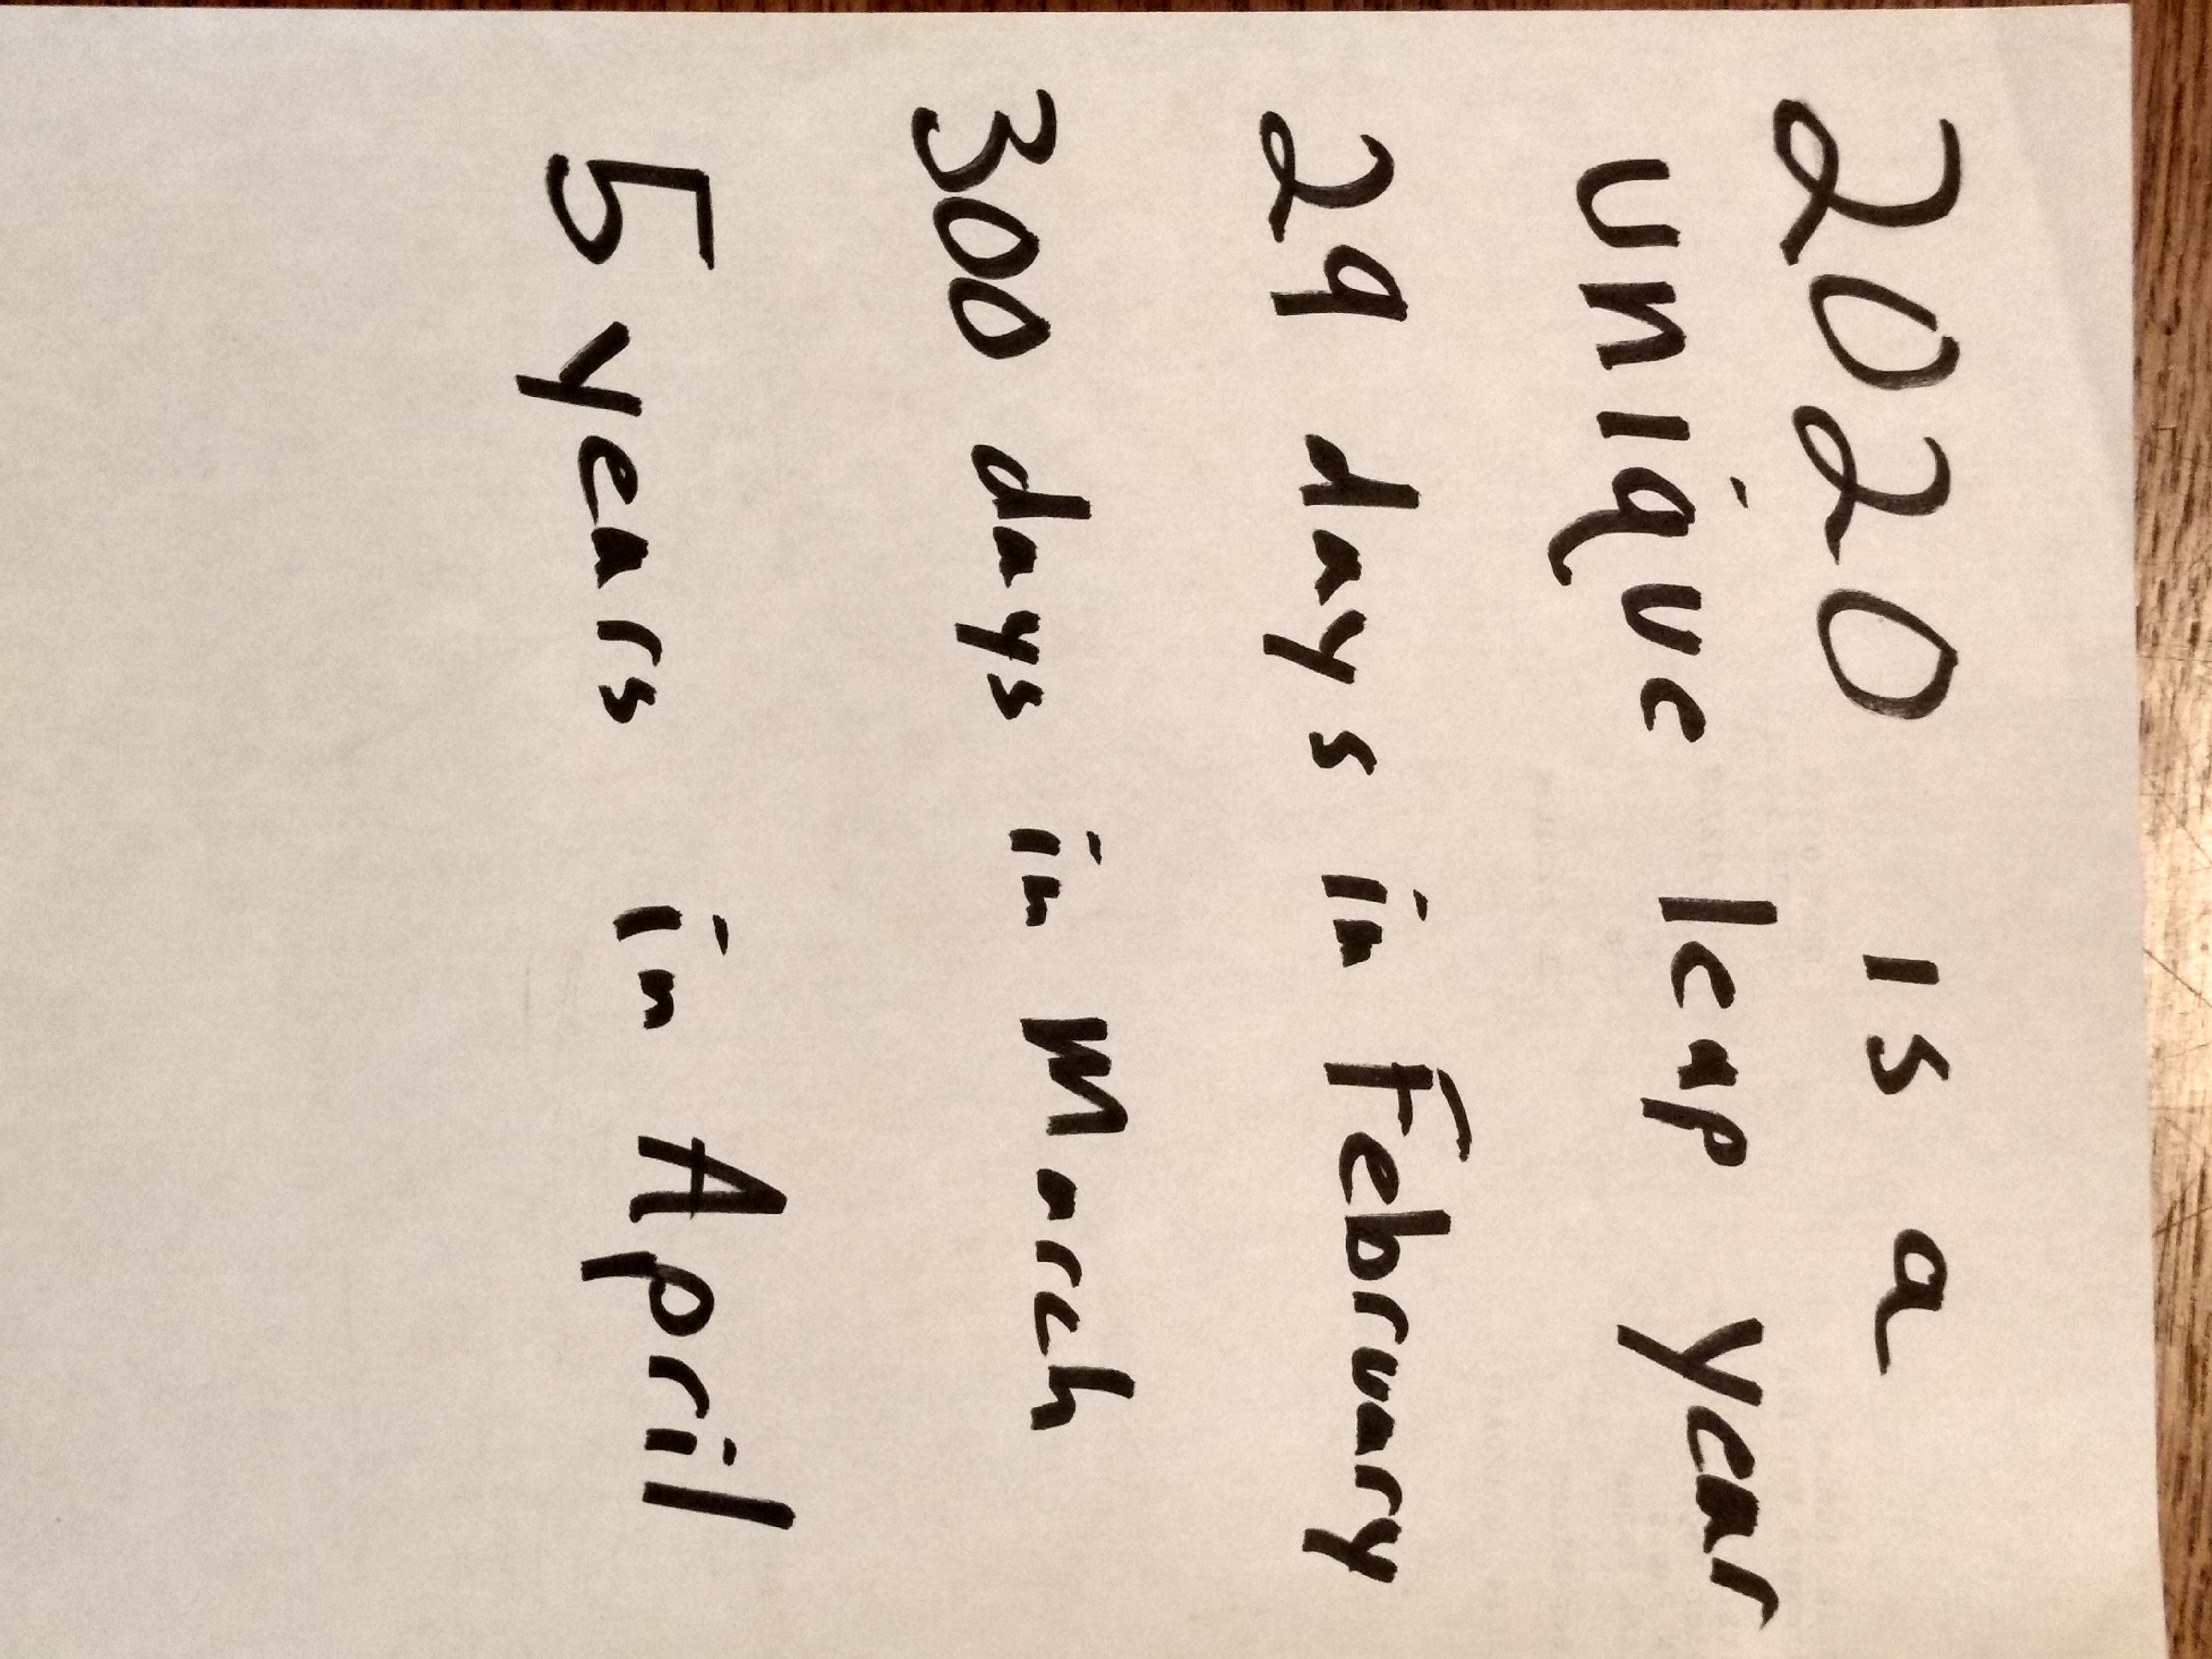 2020 is a
unique leap year
29 days in February
300 days in March
5 years in April